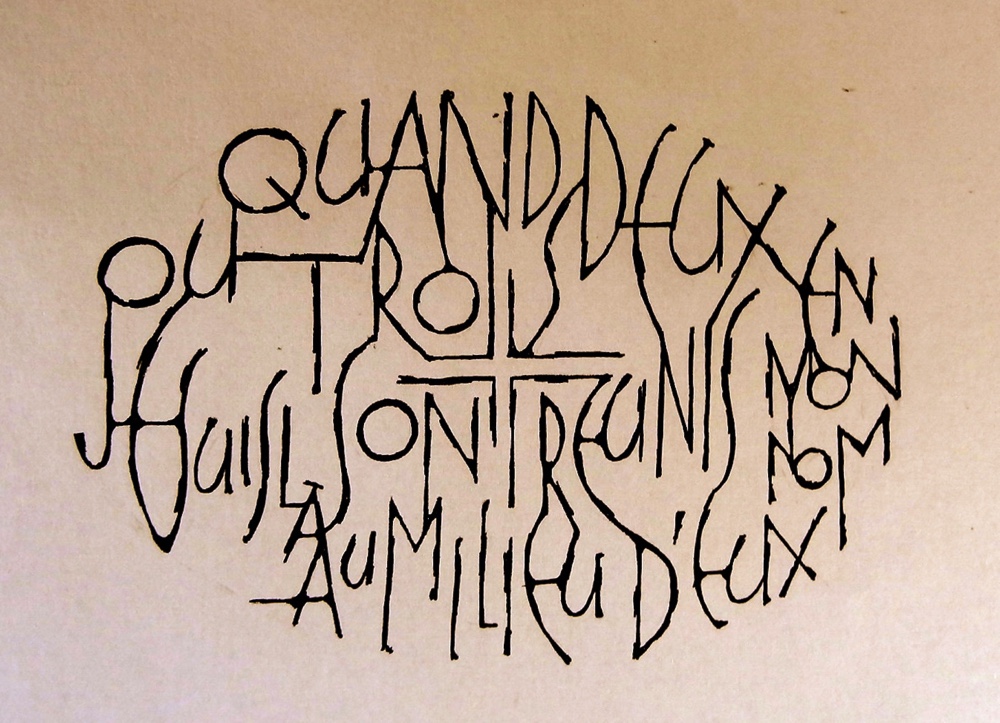 QUAND DEUX
OU TROIS
SONT REUNIS
EN
MON
NOM
JE SUIS LA
AU MILIEU D'EUX